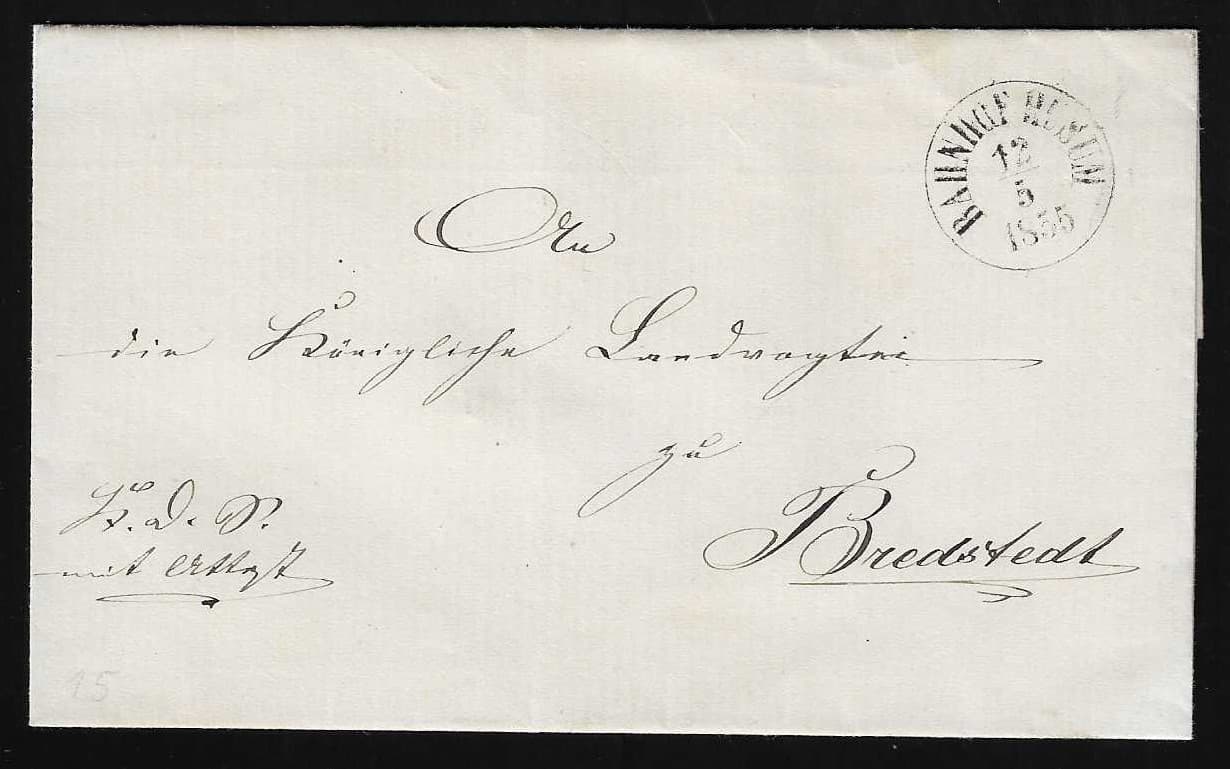 BAHNHOF HUSUM
12
5
1855
An
die Königliche Landvogtei
zu
Bredstedt
K. D. S.
mit Attest
15